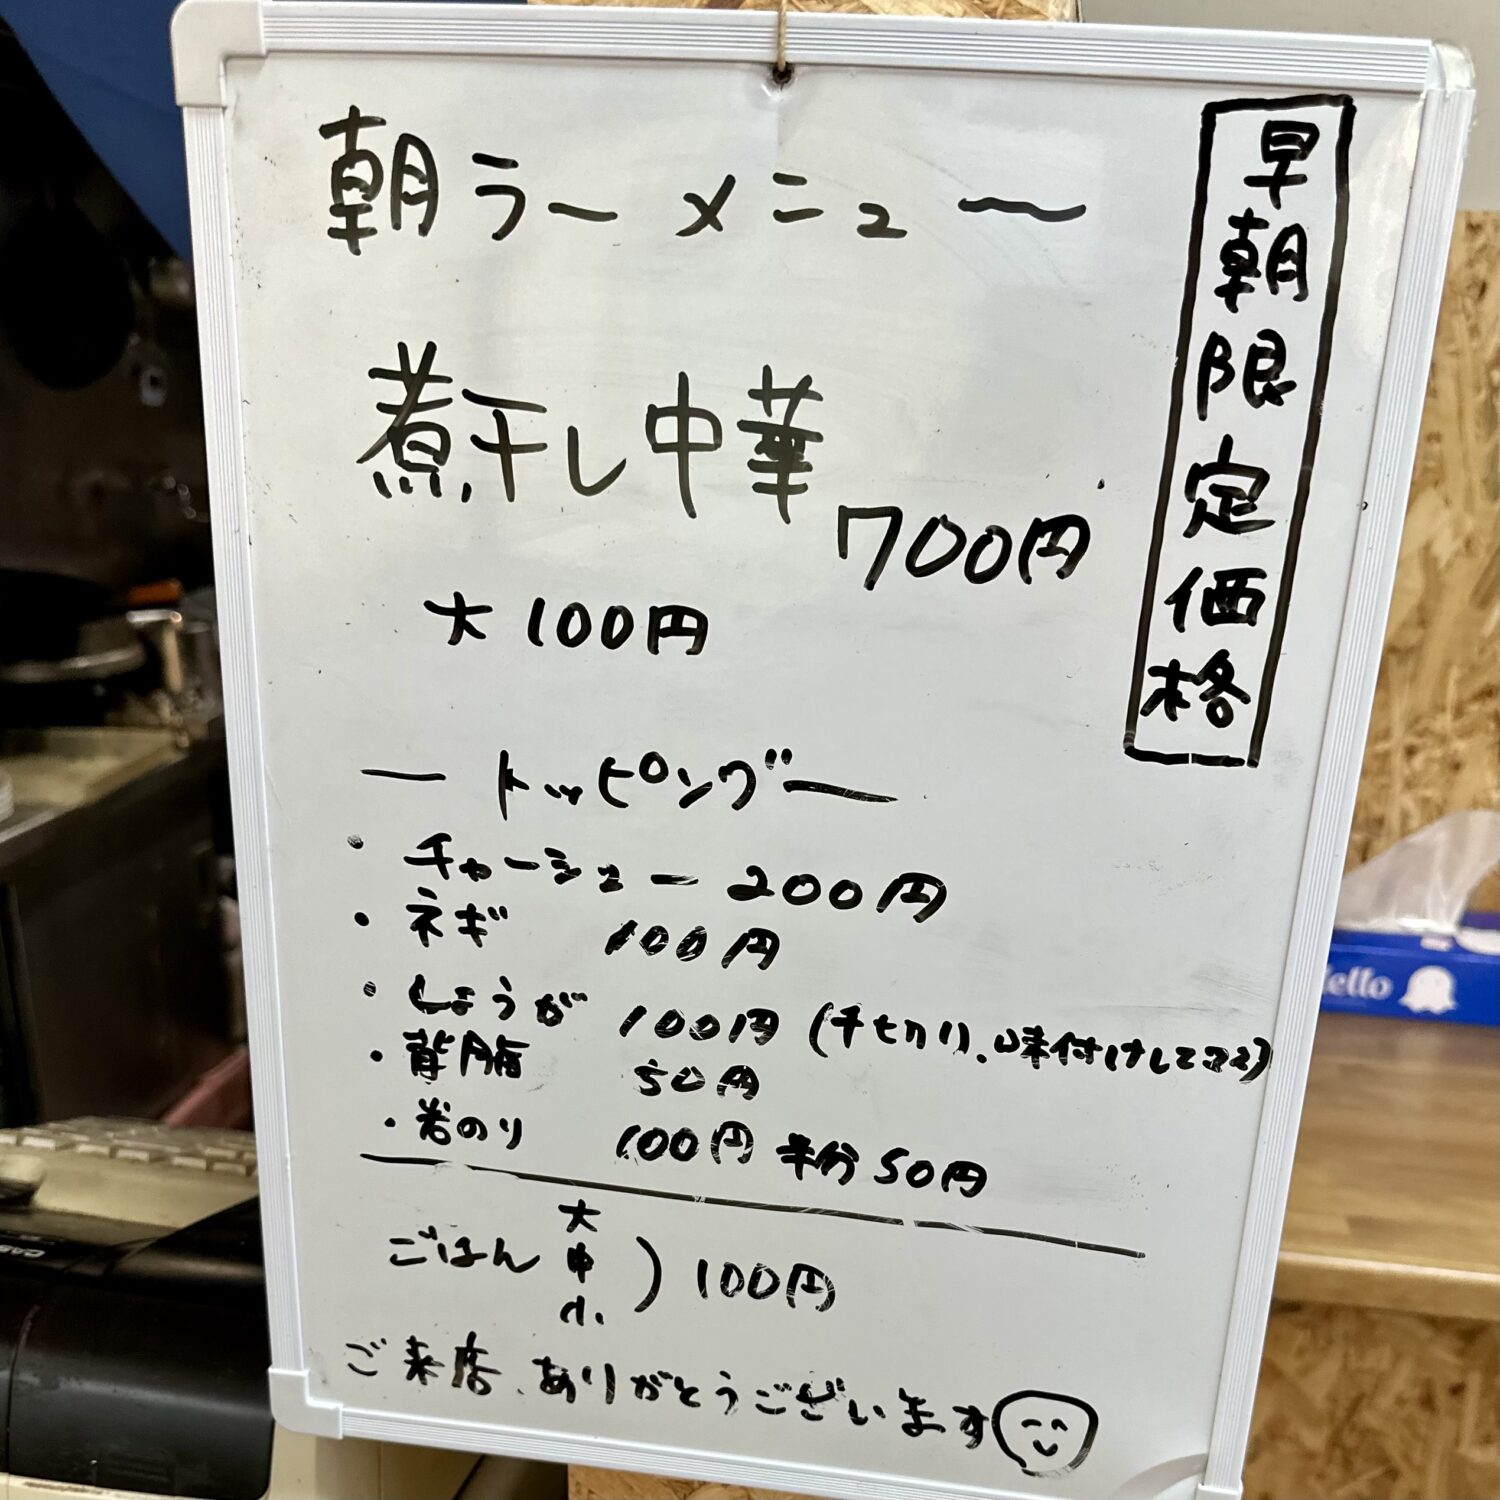 朝ラーメニュー
早朝限定価格
煮干し中華
700円
大 100円
ートッピングー
・チャーシュー 200円
・ネギ 100円
・しょうが 100円 (千切り、味付けしてます)
・背脂 50円
・岩のり 100円 半分50円
ごはん 大 中 小 ) 100円
ご来店、ありがとうございます
ello
CAS